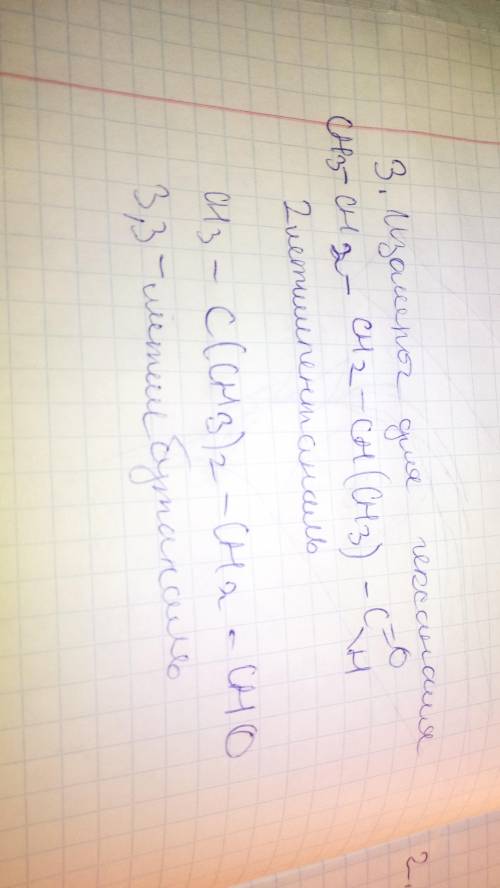 3. Изамеры для гексаналя
CH3-CH2-CH2-CH(CH3)-C=O
H
2метилпентаналь
CH3-C(CH3)2-CH2-CHO
3,3-метилбутаналь
2